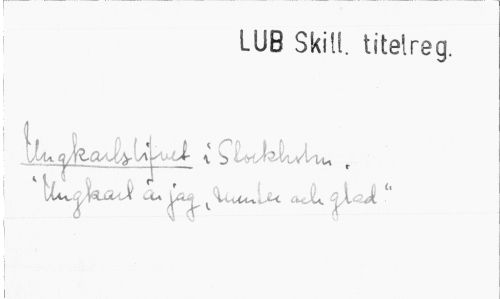 LUB Skill. titelreg.
Ungkarlslifvet i Stockholm.
"Ungkarl är jag, munter och glad"